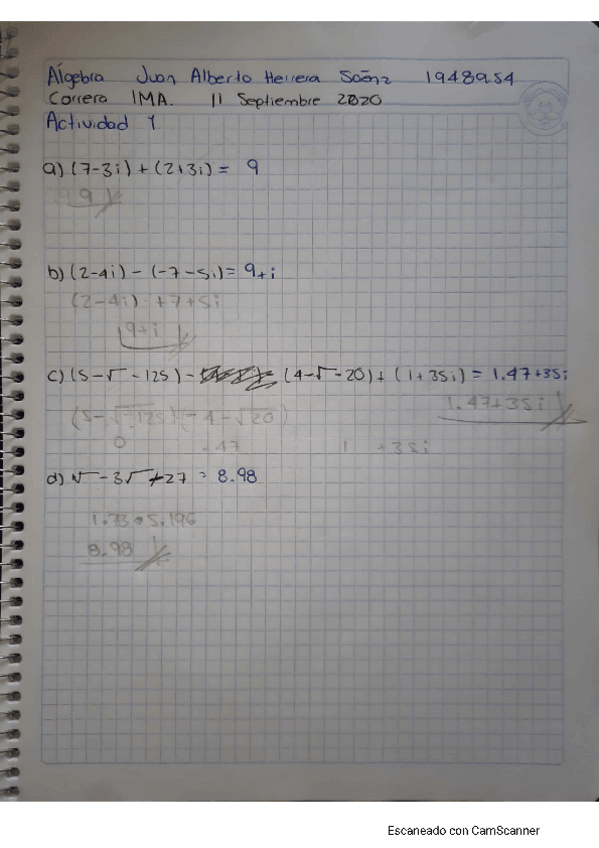 Algebra Juan Alberto Herrera Saenz 1948954
Carrera IMA. 11 Septiembre 2020
Actividad 1.
a) (7-3i) + (2+3i) = 9
9
b) (2-4i) - (-7-5i) = 9+i
(2-4i) + 7+5i
9+i
c) (5-√-125) - (4-√-20) + (1+35i) = 1.47+35i
1.47+35i
(5-√-125) -4-√20)
0 .47 1 +35i
d) √-3√-27 = 8.98
1.73 • 5.196
8.98
Escaneado con CamScanner